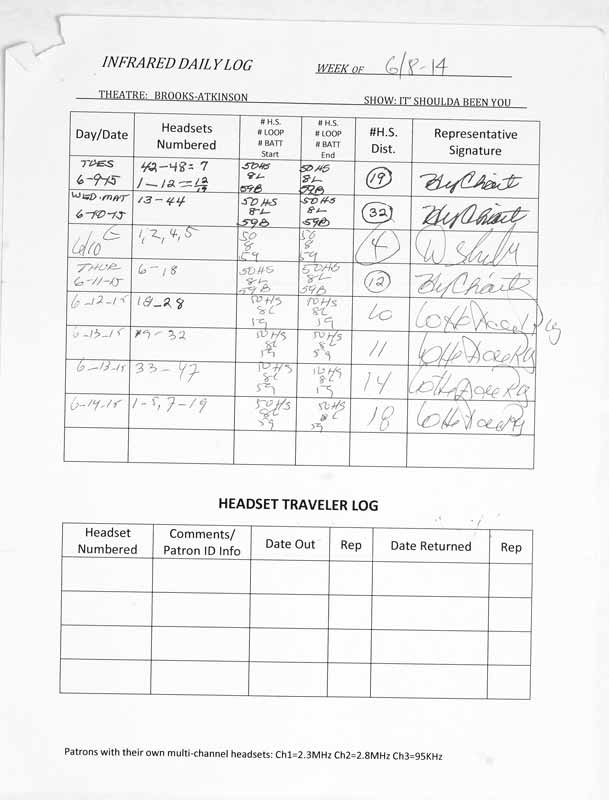 INFRARED DAILY LOG WEEK OF 6/8-14
THEATRE: BROOKS-ATKINSON SHOW: IT' SHOULDA BEEN YOU
Day/Date Headsets Numbered # H.S. # LOOP # BATT Start # H.S. # LOOP # BATT End #H.S. Dist. Representative Signature
TUES 6-9-15 42-48=7 1-12=12 19 50HS 8L 59B 50HS 8L 59B 19
WED.MAT 6-10-15 13-44 50HS 8L 59B 50HS 8L 59B 32
6/10 E 1, 2, 4, 5 50 8 59 50 8 59 4
THUR 6-11-15 6-18 50HS 8L 59B 50HS 8L 59B 12
6-12-15 18-28 50HS 8L 50HS 8L 10
6-13-15 9-32 50HS 8L 50HS 8L 59 11
6-13-15 33-47 8L 59 8L 59 14
6-14-15 1-5, 7-19 50HS 8L 59 50HS 8L 59 18
HEADSET TRAVELER LOG
Headset Numbered Comments/ Patron ID Info Date Out Rep Date Returned Rep
Patrons with their own multi-channel headsets: Ch1=2.3MHz Ch2=2.8MHz Ch3=95KHz